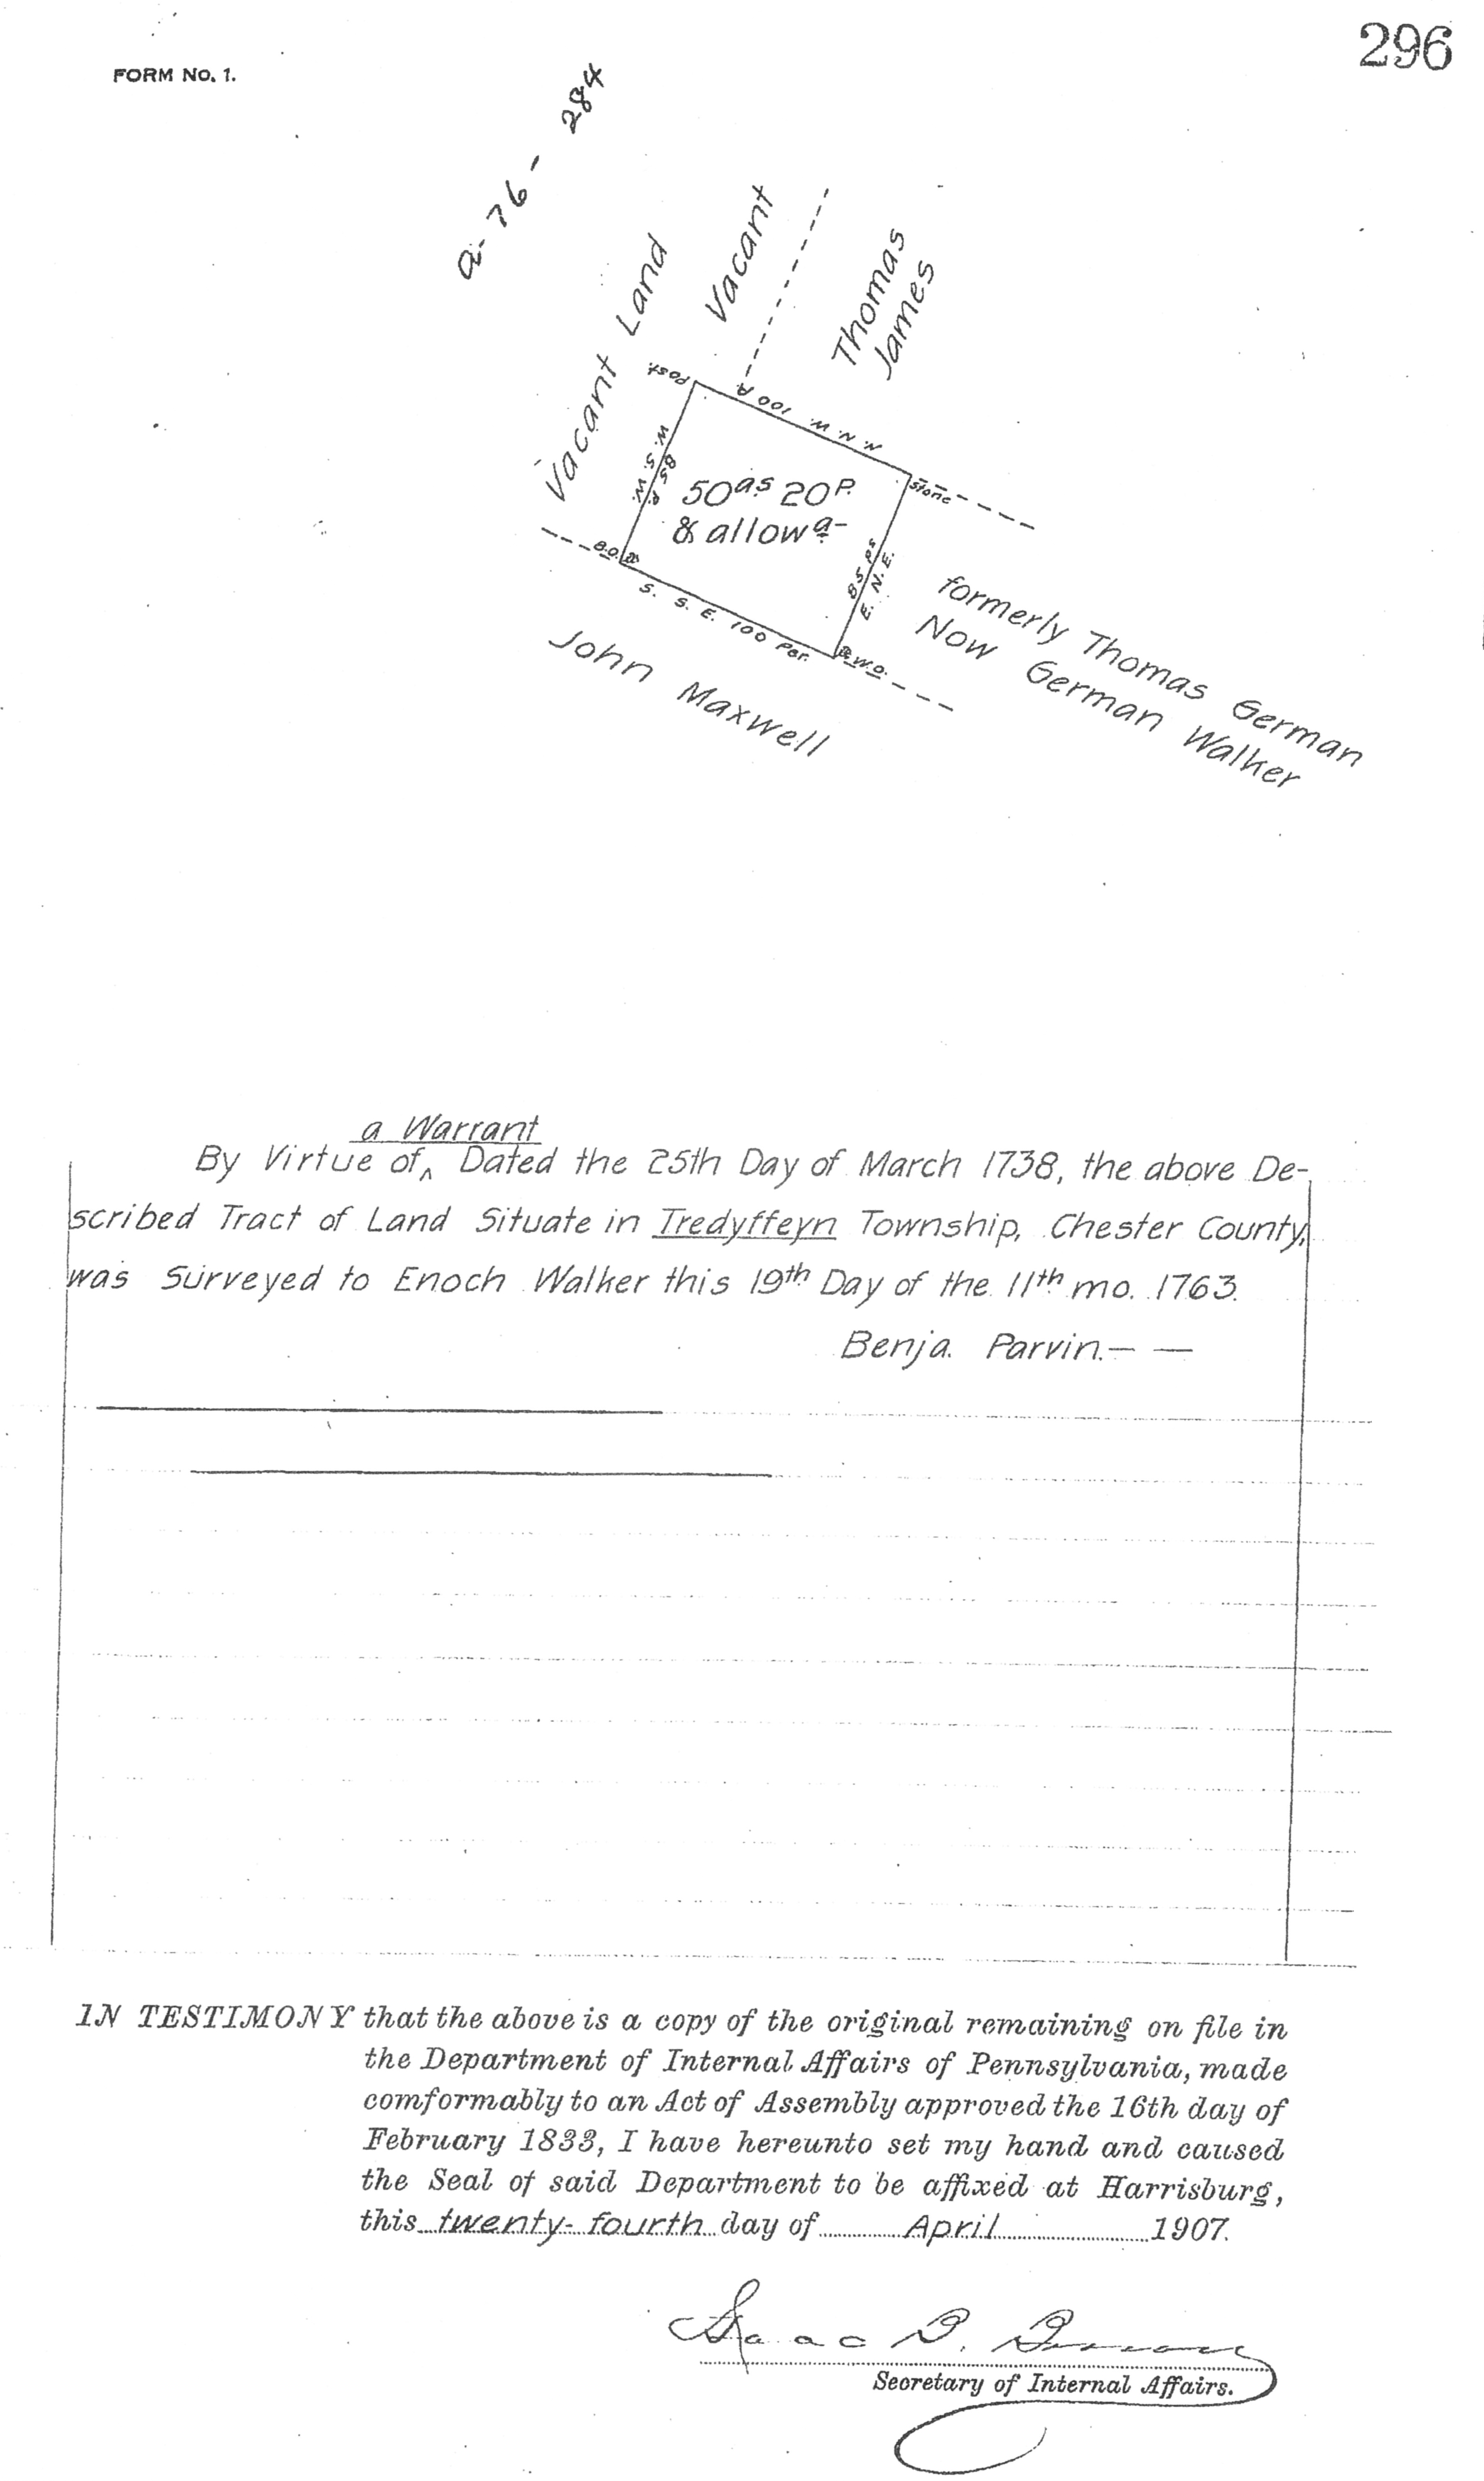 296
FORM No. 1.
a- 76 - 284
Vacant Land
Vacant
Thomas
James
Post.
N. N. W. 100 P.
W. S. W.
85 P.
50as 20P.
& allowa-
Stone
B.O.
85 Ps
E. N. E.
S. S. E. 100 Per.
W.O.
John Maxwell
formerly Thomas German
Now German Walker
a Warrant
By Virtue of‸ Dated the 25th Day of March 1738, the above De-
scribed Tract of Land Situate in Tredyffeyn Township, Chester County,
was Surveyed to Enoch Walker this 19th Day of the 11th mo. 1763.
Benja. Parvin.— —
IN TESTIMONY that the above is a copy of the original remaining on file in
the Department of Internal Affairs of Pennsylvania, made
comformably to an Act of Assembly approved the 16th day of
February 1833, I have hereunto set my hand and caused
the Seal of said Department to be affixed at Harrisburg,
this twenty-fourth day of April 1907.
Isaac B. Brown
Secretary of Internal Affairs.